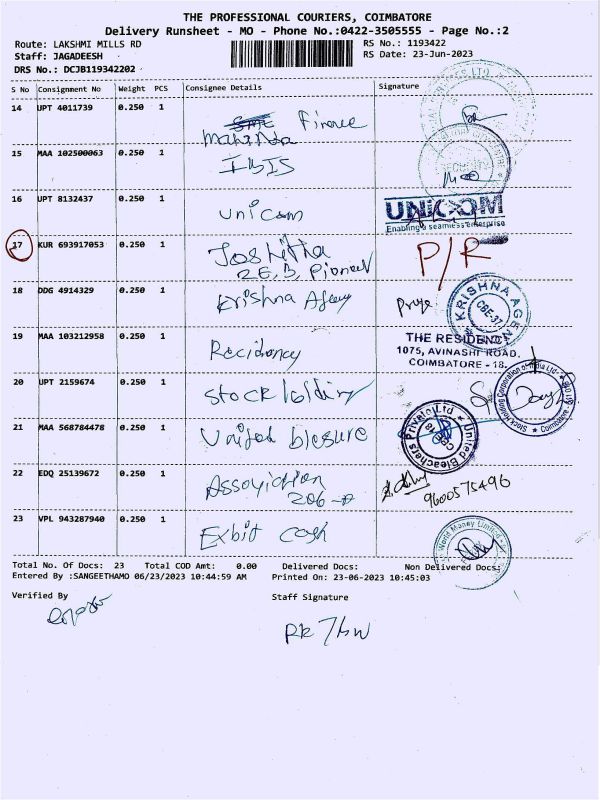 THE PROFESSIONAL COURIERS, COIMBATORE
Delivery Runsheet - MO - Phone No.:0422-3505555 - Page No.:2
Route: LAKSHMI MILLS RD
RS No.: 1193422
Staff: JAGADEESH
RS Date: 23-Jun-2023
DRS No.: DCJB119342202
S No Consignment No Weight PCS Consignee Details Signature
14 UPT 4011739 0.250 1 Finance
15 MAA 102500063 0.250 1 IBIS
16 UPT 8132437 0.250 1 Unicom
UNICOM
Enabling a seamless enterprise
17 KUR 693917053 0.250 1 Joshitha P/R
2E,B, Pioneer
18 DDG 4914329 0.250 1 Krishna Agency
KRISHNA AGEN
CBE-37
19 MAA 103212958 0.250 1 Recidancy
THE RESIDENCY
1075, AVINASHI ROAD,
COIMBATORE - 18.
20 UPT 2159674 0.250 1 Stock holding
Stock Holding Corporation of India Ltd
Coimbatore
21 MAA 568784478 0.250 1 United blesure
United Bleachers Private Ltd
22 EDQ 25139672 0.250 1 Assoyiction
206-A
9600575496
23 VPL 943287940 0.250 1 Exbit cash
World Money Limited
Total No. Of Docs: 23 Total COD Amt: 0.00 Delivered Docs: Non Delivered Docs:
Entered By :SANGEETHAMO 06/23/2023 10:44:59 AM Printed On: 23-06-2023 10:45:03
Verified By Staff Signature